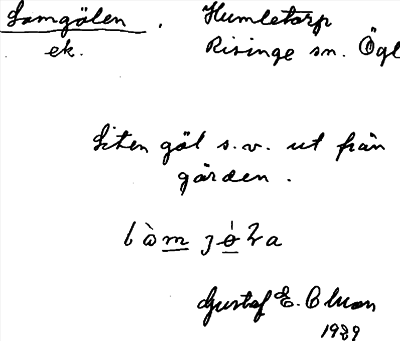 Lomgölen . Humletorp
ek. Risinge sn. Ögl
Liten göl s.v. ut från
gården .
Gustaf E. Olsson
1929